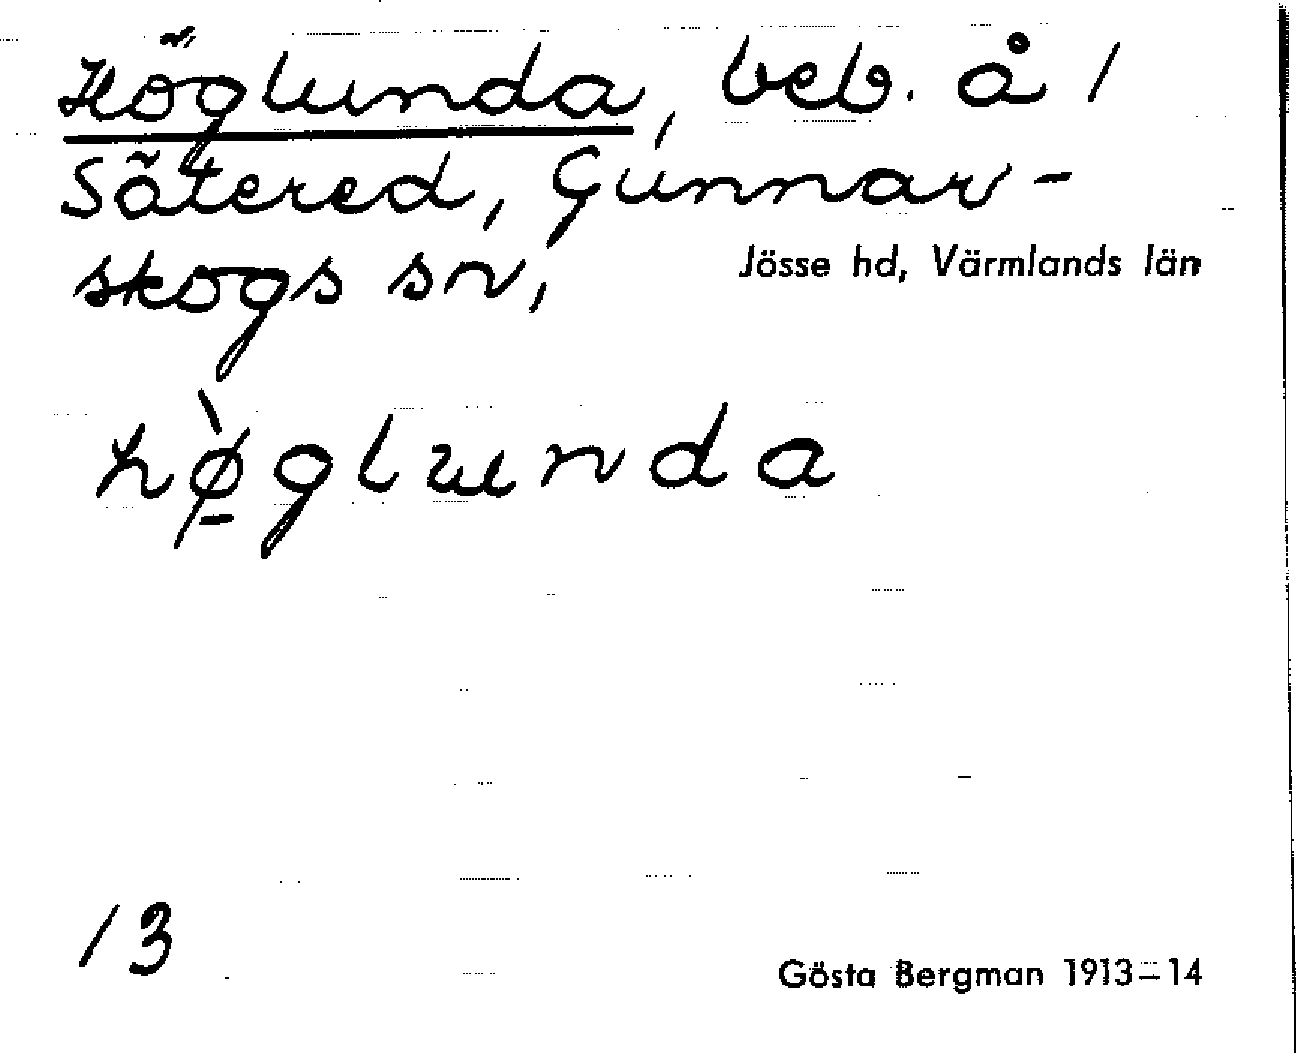 Höglunda, beb. å 1
Sätered, Gunnar-
skogs sn, Jösse hd, Värmlands län
hø̱̀glunda
13
Gösta Bergman 1913–14